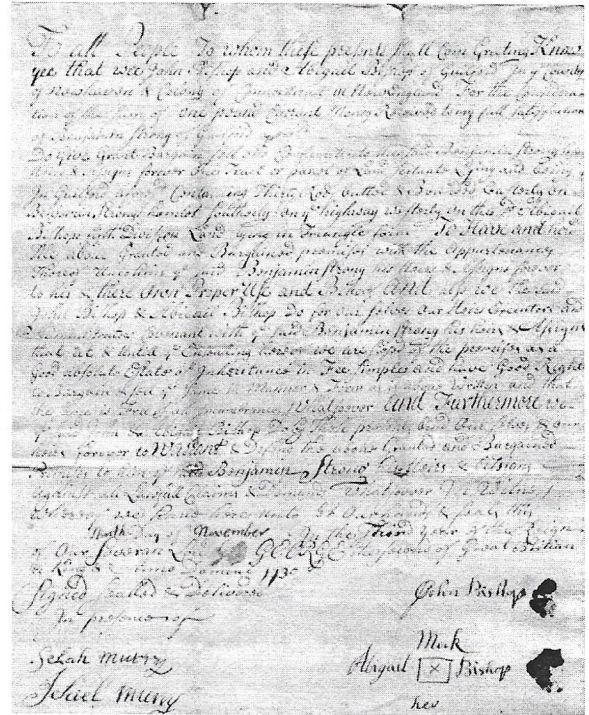 To all People To whom these presents shall Come Greeting Know
yee that wee John Bishop and Abigail Bishop of Guilford In ye County
of Newhaven & Colony of Connecticut in New England For the Considera
tion of the sum of one pound Current Money Received to my full satisfaction
of Benjamin Strong of Guilford
Do Give Grant Bargain sell and Benjamin Strong
Heirs & Assigns forever One Tract or parcel of Land Scituate Lying and being
In Guilford Containing Thirty Rod butted & Bounded Easterly on
Benjamin Strong homlot southerly on ye highway westerly on the sd Abigail
Bishop Land Lying in Triangle form To Have and hold
the above Granted and Bargained premises with the Appurtenances
Thereof unto him ye said Benjamin Strong his Heirs & Assigns forever
to his & there Own Proper Use and Behoof And also we the said
John Bishop & Abigail Bishop do for our selves our Heirs Executors and
Administrators Covenant with ye said Benjamin Strong his heirs & Assigns
that at & untill ye Ensealing hereof we are of the premises as a
Good absolute Estate of Inheritance in Fee Simple and have Good Right
to Bargain & sell ye same in Manner & Form as above Written and that
the same is Free of all Incumbrances Whatsoever And Furthermore we
ye said John & Abigail Bishop Do by these presents bind Our selves & our
heirs forever to Warrant & Defend the above Granted and Bargained
Premises to him ye sd Benjamin Strong his Heirs & Assigns
Against all Lawfull Claims & Demands Whatsoever In Witness
whereof we have hereunto set Our hands & seals this
Day of November In the Third Year of the Reign
of Our Soveran Lord GEORGE the second of Great Brittain
&c King & Annno Domine 173
Signed sealed & Delivered
In presence of
John Bishop
Selah murry
Mark
Abigail × Bishop
her
Jehiel murry